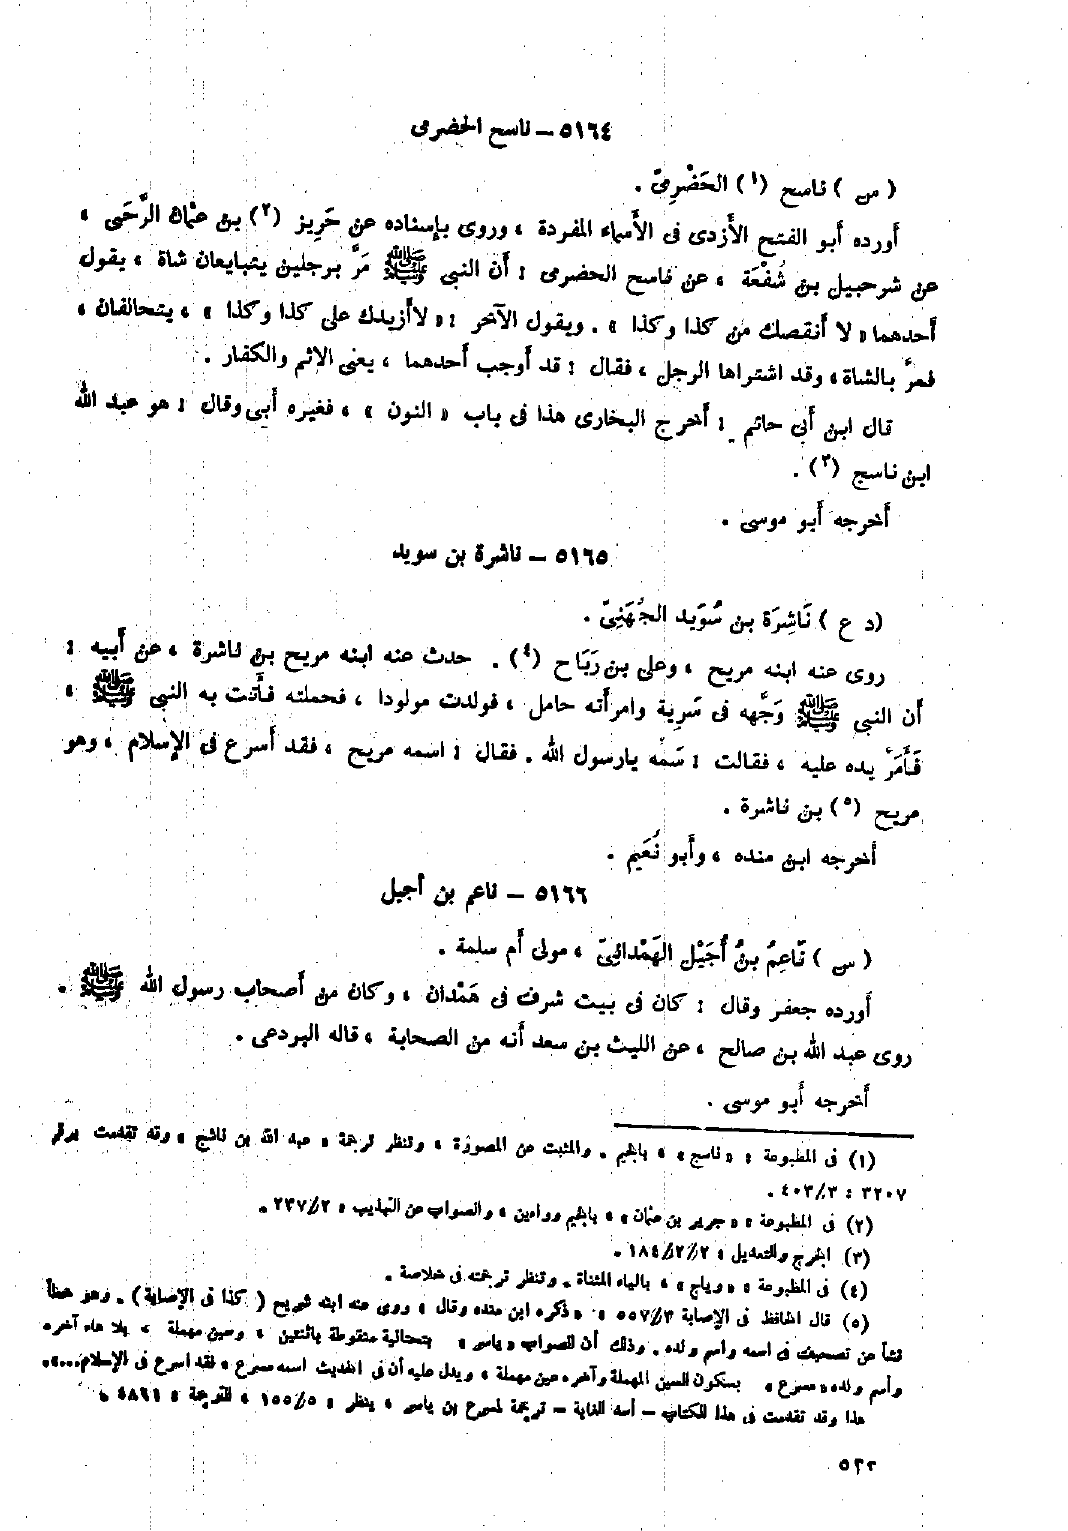 ٥١٦٤ – ناسح الحضرمى
( س ) ناسح (١) الحَضْرمِىّ .
أورده أبو الفتح الأزدى فى الأسماء المفردة ، وروى بإسناده عن حَرِيز (٢) بن عثمان الرَّحَبى ،
عن شرحبيل بن شُفْعَة ، عن ناسح الحضرمى : أن النبى ﷺ مَرَّ برجلين يتبايعان شاة ، يقول
أحدهما « لا أنقصك من كذا وكذا » . ويقول الآخر : « لا أزيدك على كذا وكذا » ، يتحالفان ،
فمرَّ بالشاة ، وقد اشتراها الرجل ، فقال : قد أوجب أحدهما ، يعنى الاثم والكفار .
قال ابن أبى حاتم : أخرج البخارى هذا فى باب « النون » ، فغيره أبى وقال : هو عبد الله
ابن ناسج (٣) .
أخرجه أبو موسى .
٥١٦٥ – ناشرة بن سويد
(د ع ) نَاشِرَة بن سُوَيد الجُهَنِىّ .
روى عنه ابنه مريح ، وعلى بن رَبَاح (٤) . حدث عنه ابنه مريح بن ناشرة ، عن أبيه :
أن النبى ﷺ وَجَّهه فى سَرِية وامرأته حامل ، فولدت مولودا ، فحملته فأتت به النبى ﷺ ،
فَأَمَرَّ يده عليه ، فقالت : سَمِّه يارسول الله . فقال : اسمه مريح ، فقد أسرع فى الإسلام ، وهو
مريح (٥) بن ناشرة .
أخرجه ابن منده ، وأبو نُعَيم .
٥١٦٦ – ناعم بن أجيل
( س ) نَاعِمُ بنُ أُجَيْل الهَمْدانِىّ ، مولى أم سلمة .
أورده جعفر وقال : كان فى بيت شرف فى هَمْدان ، وكان من أصحاب رسول الله ﷺ .
روى عبد الله بن صالح ، عن الليث بن سعد أنه من الصحابة ، قاله البردعى .
أخرجه أبو موسى .
(١) فى المطبوعة : « ناسج » ، بالجيم . والمثبت عن المصورة ، وتنظر ترجمة « عبد الله بن ناشج » وقد تقدمت برقم
٣٢٠٧ : ٤٠٣/٣ .
(٢) فى المطبوعة : « جرير بن عثمان » ، بالجيم وراءين ، والصواب عن التهذيب : ٢٣٧/٢ .
(٣) الجرح والتعديل : ١٨٤/٢/٢ .
(٤) فى المطبوعة : « رياح » ، بالياء المثناة . وتنظر ترجمته فى خلاصة .
(٥) قال الحافظ فى الإصابة ٥٥٧/٣ : « ذكره ابن منده وقال : روى عنه ابنه شريح ( كذا فى الإصابة ) . وهو خطأ
نشأ عن تصحيف فى اسمه واسم ولده . وذلك أن الصواب « ياسر » بتحتانية منقوطة باثنتين ، وسين مهملة ، بلا هاء آخره
واسم ولده « مسرع » بسكون السين المهملة وآخره عين مهملة ، ويدل عليه أن فى الحديث اسمه مسرع ، فقد أسرع فى الإسلام...».
هذا وقد تقدمت فى هذا الكتاب – أسد الغابة – ترجمة لمسرع بن ياسر ، ينظر : ١٥٥/٥ ، الترجمة : ٤٨٦١ .
٥٢٢